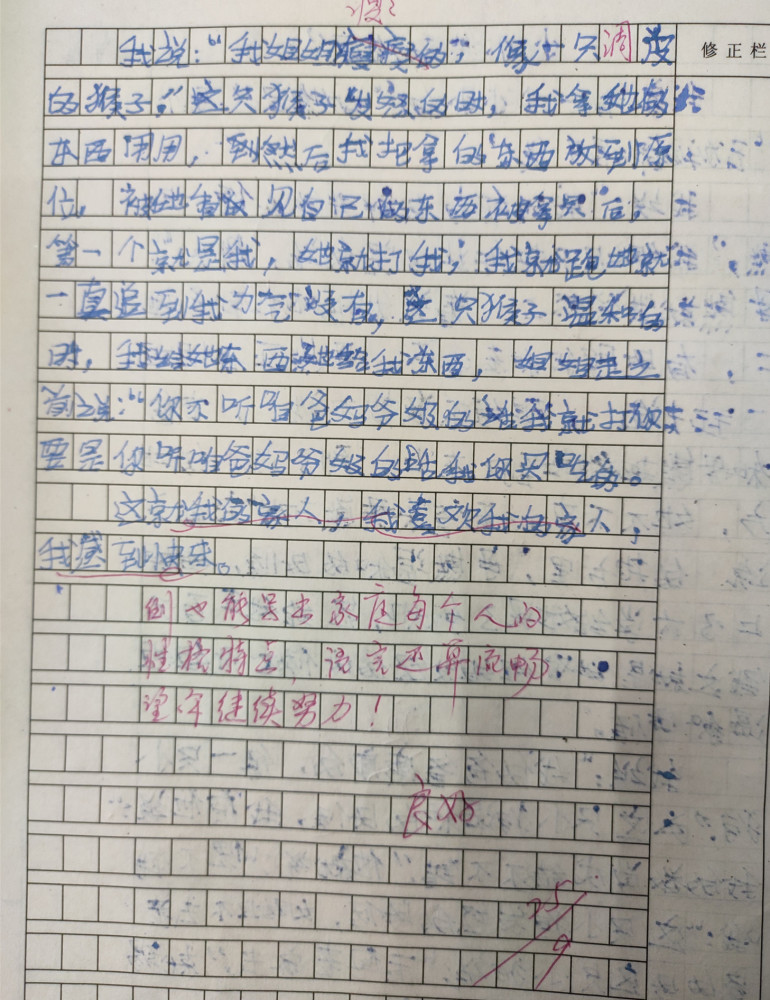 我说：“我姐姐瘦瘦的，像一只调皮
修正栏
的猴子。”这只猴子发怒的时，我拿她的
东西用用，到然后我把拿的东西放到原
位，被她看见自己的东西被拿只后，
第一个就是我，她就打我，我就跑她就
一真追到我为，这只猴子温和的
时，我给她东西她给我东西，姐姐走之
前说：“你不听咱爸妈爷奶的话我就打你
要是你听咱爸妈爷奶的话我你买吃的。
这就我的家人，我喜欢我的家人，
我感到快乐。
倒也能写出家庭每个人的
性格特点，语言还算流畅
望年继续努力！
良好
25/9